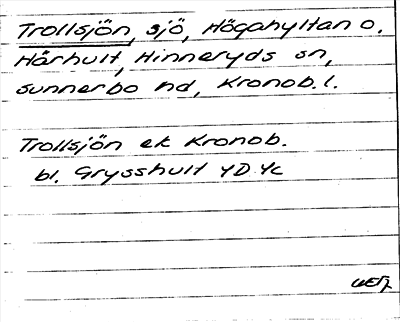 Trollsjön, sjö, Högahyltan o.
Hårhult, Hinneryds sn,
Sunnerbo hd, Kronob. l.
Trollsjön ek Kronob.
bl. Grysshult 4D 4c